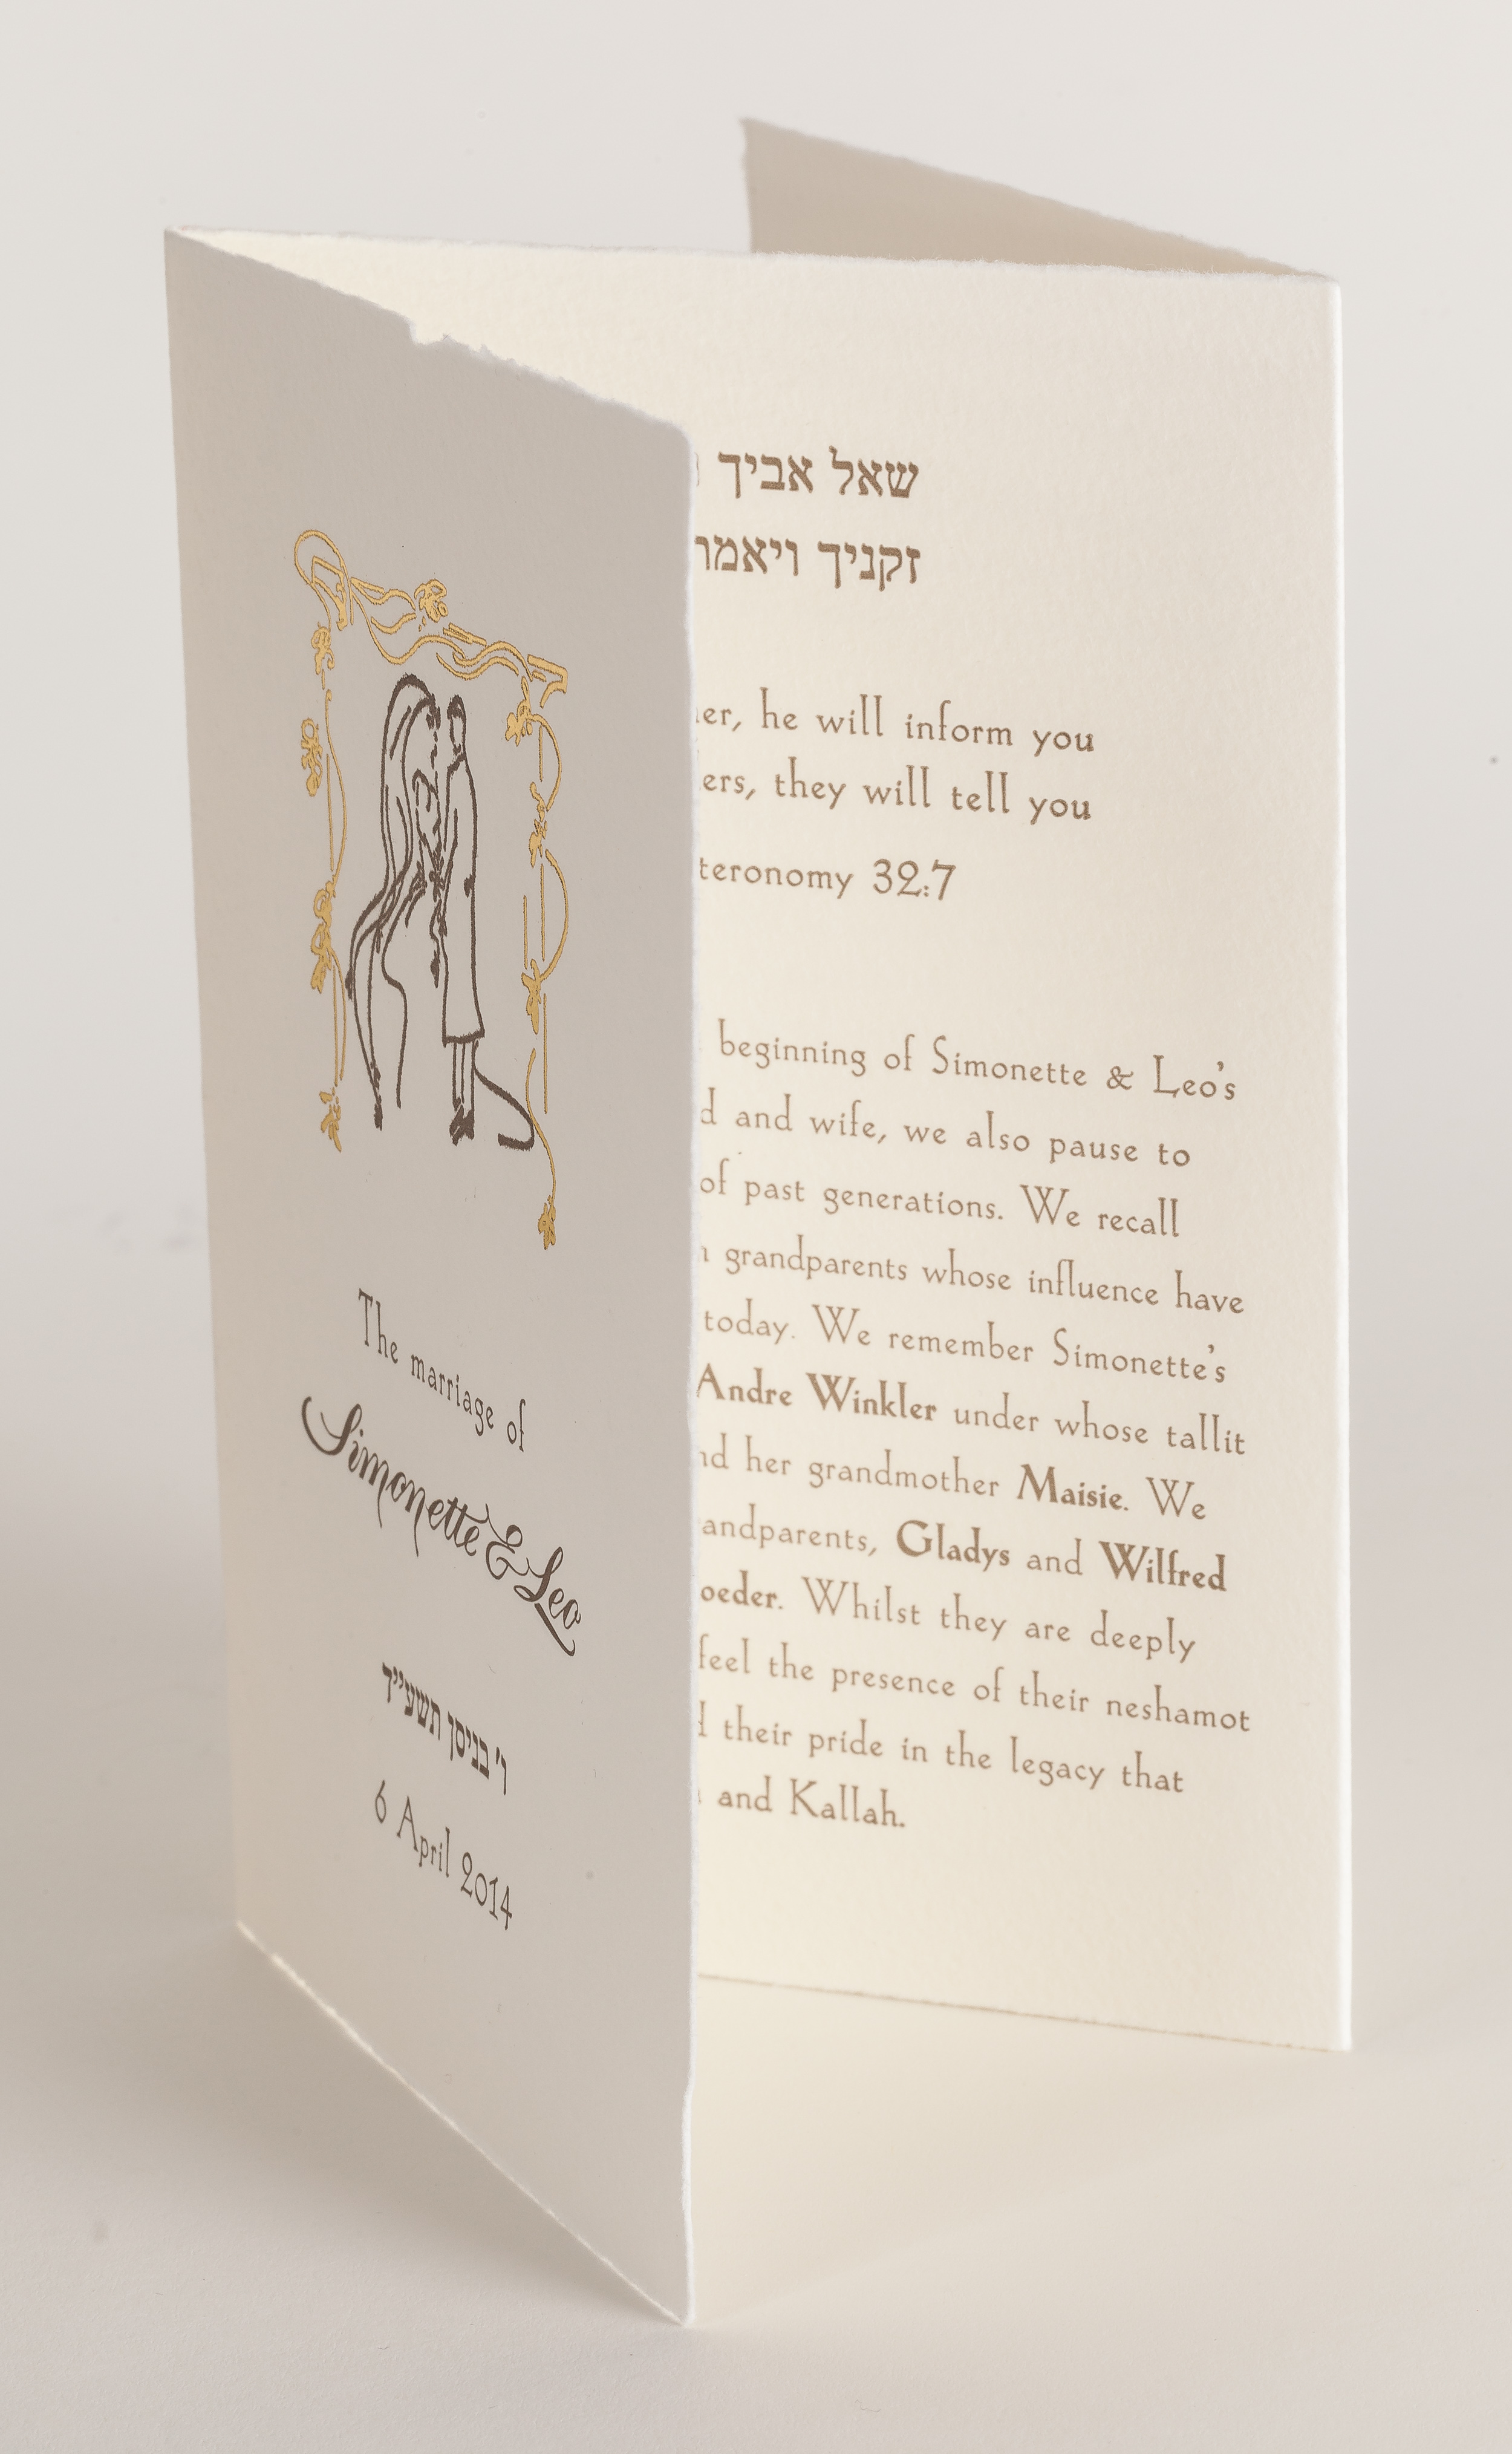 The marriage of
Simonette & Leo
ו' בניסן תשע"ד
6 April 2014
שאל אביך
זקניך ויאמרו
he will inform you
they will tell you
32:7
beginning of Simonette & Leo's
and wife, we also pause to
of past generations. We recall
grandparents whose influence have
today. We remember Simonette's
Andre Winkler under whose tallit
her grandmother Maisie. We
Gladys and Wilfred
Whilst they are deeply
feel the presence of their neshamot
their pride in the legacy that
and Kallah.